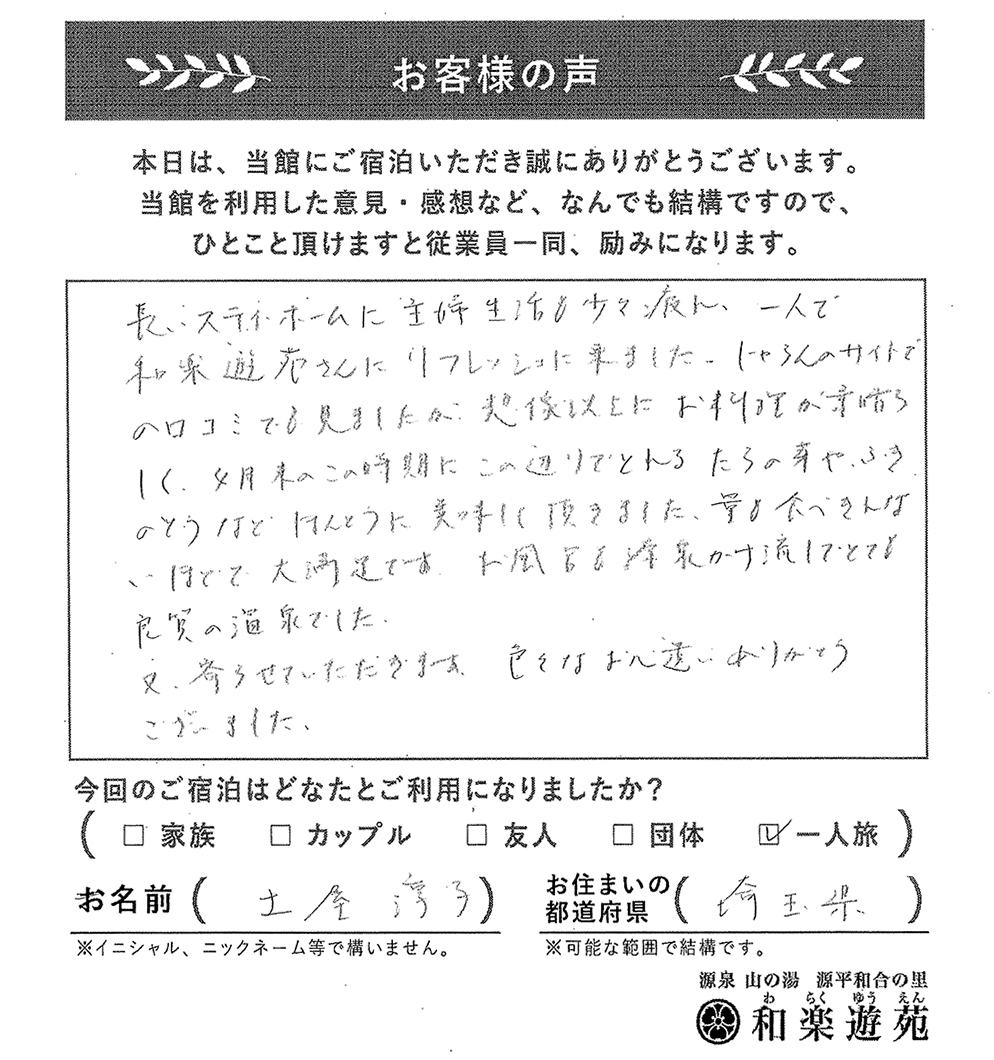 お客様の声
本日は、当館にご宿泊いただき誠にありがとうございます。
当館を利用した意見・感想など、なんでも結構ですので、
ひとこと頂けますと従業員一同、励みになります。
長いステイホームに主婦生活も少々疲れ、一人で
和楽遊苑さんにリフレッシュに来ました。じゃらんのサイトで
の口コミでも見ましたが、想像以上にお料理が素晴ら
しく、4月末のこの時期にこの辺りでとれるたらの芽や、ふき
のとうなどほんとうに美味しく頂きました、量も食べきんな
いほどで大満足です。お風呂も源泉かけ流しでとても
良質の温泉でした。
又、寄らせていただきます。色々なお心遣いありがとう
ございました。
今回のご宿泊はどなたとご利用になりましたか?
( □ 家族 □ カップル □ 友人 □ 団体 ☑ 一人旅 )
お名前 ( 土屋 淳子 )
※イニシャル、ニックネーム等で構いません。
お住まいの
都道府県 ( 埼玉県 )
※可能な範囲で結構です。
源泉 山の湯 源平和合の里
わ らく ゆう えん
和楽遊苑